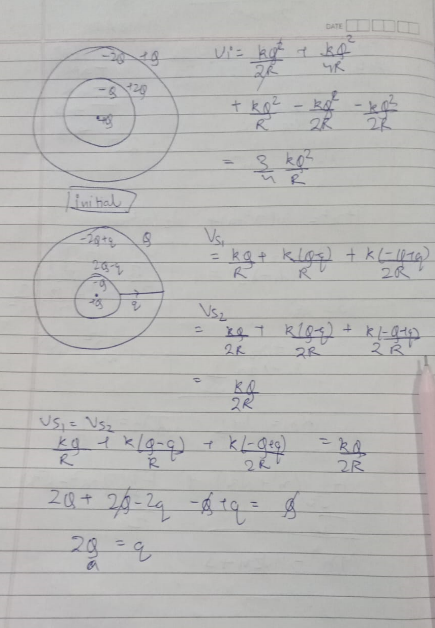 DATE
-2Q +Q
-Q +2Q
+Q
Ui = kQ²/2R + kQ²/4R
+ kQ²/R - kQ²/2R - kQ²/2R
= 3/4 kQ²/R
Initial
-2Q+q Q
2Q-q
-Q
+Q
q
VS₁
= kQ/R + k(Q-q)/R + k(-Q+q)/2R
VS₂
= kQ/2R + k(Q-q)/2R + k(-Q+q)/2R
= kQ/2R
VS₁ = VS₂
kQ/R + k(Q-q)/R + k(-Q+q)/2R = kQ/2R
2Q + 2Q - 2q - Q + q = Q
2Q = q